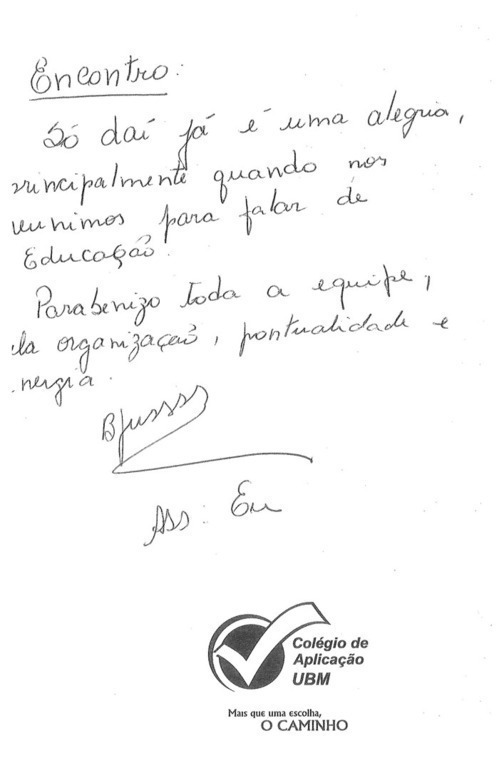 Encontro:
Só daí já é uma alegria,
rincipalmente quando nos
reunimos para falar de
Educação.
Parabenizo toda a equipe,
ela organização, pontualidade e
nergia.
Bjussss
Ass: Eu
Colégio de
Aplicação
UBM
Mais que uma escolha,
O CAMINHO